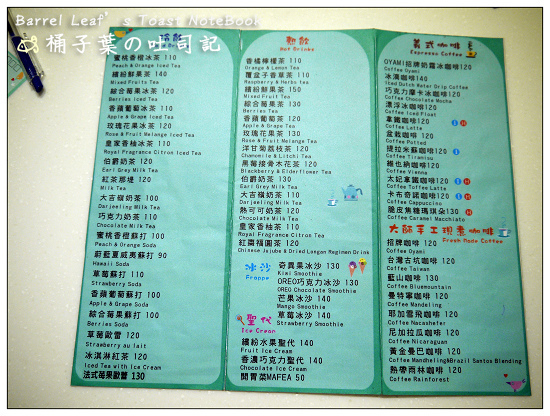 Barrel Leaf's Toast NoteBook
桶子葉の吐司記
冷飲
蜜桃香橙冰茶 110
Peach & Orange Iced Tea
繽紛鮮果茶 140
Mixed Fruits Tea
綜合莓果冰茶 120
Berries Iced Tea
香蘋葡萄冰茶 110
Apple & Grape Iced Tea
玫瑰花果冰茶 110
Rose & Fruit Melange Iced Tea
皇家香柚冰茶 110
Royal Fragrance Citron Iced Tea
伯爵奶茶 120
Earl Grey Milk Tea
紅茶那堤 120
Milk Tea
大吉嶺奶茶 100
Darjeeling Milk Tea
巧克力奶茶 110
Chocolate Milk Tea
蜜桃香橙蘇打 100
Peach & Orange Soda
蔚藍夏威夷蘇打 90
Hawaii Soda
草莓蘇打 110
Strawberry Soda
香蘋葡萄蘇打 100
Apple & Grape Soda
綜合莓果蘇打 100
Berries Soda
草莓歐蕾 120
Strawberry au lait
冰淇淋紅茶 120
Iced Tea with Ice Cream
法式芒果歐蕾 130
熱飲
Hot Drinks
香橘檸檬茶 110
Orange & Lemon Tea
覆盆子香草茶 110
Raspberry & Herbs Tea
繽紛鮮果茶 150
Mixed Fruit Tea
綜合莓果茶 130
Berries Tea
香蘋葡萄茶 120
Apple & Grape Tea
玫瑰花果茶 130
Rose & Fruit Melange Tea
洋甘菊荔枝茶 120
Chamomile & Litchi Tea
黑莓接骨木花茶 120
Blackberry & Elderflower Tea
伯爵奶茶 130
Earl Grey Milk Tea
大吉嶺奶茶 110
Darjeeling Milk Tea
熱可可奶茶 120
Chocolate Milk Tea
皇家香柚茶 110
Royal Fragrance Citron Tea
紅棗福圓茶 120
Chinese Jujube & Dried Longan Regimen Drink
冰沙
Frappe
奇異果冰沙 130
Kiwi Smoothie
OREO巧克力冰沙 130
OREO Chocolate Smoothie
芒果冰沙 140
Mango Smoothie
草莓冰沙 130
Strawberry Smoothie
聖代
Ice Cream
繽紛水果聖代 140
Fruit Ice Cream
香濃巧克力聖代 140
Chocolate Ice Cream
開胃菜MAFEA 50
義式咖啡
Espresso Coffee
OYAMI招牌奶霜冰咖啡120
Coffee Oyami
冰滴咖啡140
Iced Dutch Water Drip Coffee
巧克力摩卡冰咖啡120
Coffee Chocolate Mocha
漂浮冰咖啡120
Coffee Iced Float
拿鐵咖啡120
Coffee Latte
盆栽咖啡 120
Coffee Potted
提拉米蘇咖啡120
Coffee Tiramisu
維也納咖啡120
Coffee Vienna
太妃拿鐵咖啡120
Coffee Toffee Latte
卡布奇諾咖啡120
Coffee Cappuccino
脆皮焦糖瑪琪朵130
Coffee Caramel Macchiato
大師手工現煮咖啡
Fresh Made Coffee
招牌咖啡 120
Coffee Oyami
台灣古坑咖啡 120
Taiwan Coffee
藍山咖啡 130
Coffee Bluemountain
曼特寧咖啡 120
Coffee Mandeling
耶加雪飛咖啡 120
Coffee Nacasheter
尼加拉瓜咖啡 120
Coffee Nicaraguan
黃金曼巴咖啡 120
Coffee Mandheling&Brazil Santos Blending
熱帶雨林咖啡 120
Coffee Rainforest